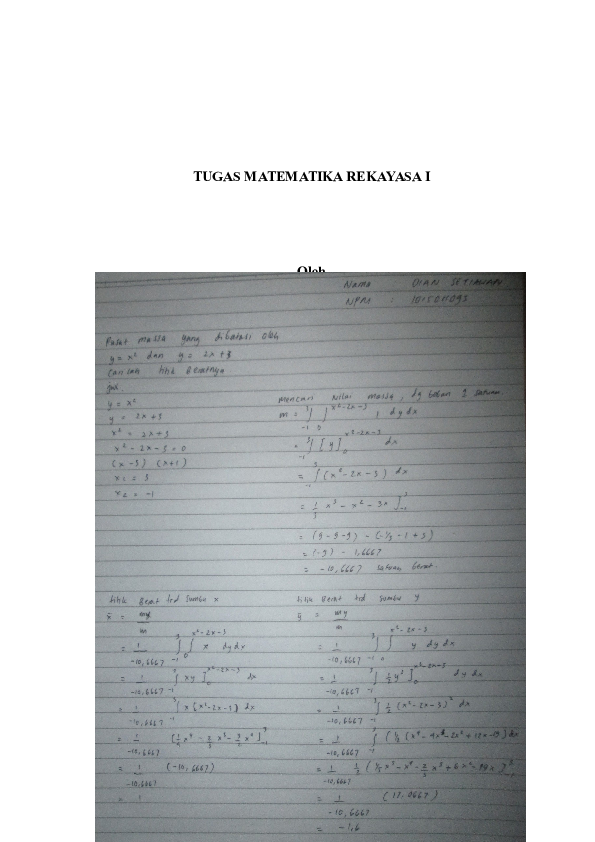 TUGAS MATEMATIKA REKAYASA I
Oleh
Nama : DIAN SETIAWAN
NPM :
Pusat massa yang dibatasi oleh
y = x² dan y = 2x + 3
Carilah titik Beratnya
y = x²
y = 2x + 3
x² = 2x + 3
x² - 2x - 3 = 0
(x - 3) (x + 1)
x₁ = 3
x₂ = -1
Mencari Nilai massa, dg beban 1 satuan.
m = ∫₋₁³ ∫₀^(x²-2x-3) 1 dy dx
= ∫₋₁³ [y]₀^(x²-2x-3) dx
= ∫₋₁³ (x² - 2x - 3) dx
= 1/3 x³ - x² - 3x ]₋₁³
= (9 - 9 - 9) - (-1/3 - 1 + 3)
= (-9) - 1,6667
= -10,6667 satuan berat.
titik Berat trd Sumbu x
x̄ = my/m
= 1/-10,6667 ∫₋₁³ ∫₀^(x²-2x-3) x dy dx
= 1/-10,6667 ∫₋₁³ [xy]₀^(x²-2x-3) dx
= 1/-10,6667 ∫₋₁³ x (x² - 2x - 3) dx
= 1/-10,6667 [1/4 x⁴ - 2/3 x³ - 3/2 x²]₋₁³
= 1/-10,6667 (-10,6667)
= 1
titik Berat trd Sumbu y
ȳ = my/m
= 1/-10,6667 ∫₋₁³ ∫₀^(x²-2x-3) y dy dx
= 1/-10,6667 ∫₋₁³ [1/2 y²]₀^(x²-2x-3) dy dx
= 1/-10,6667 ∫₋₁³ 1/2 (x² - 2x - 3)² dx
= 1/-10,6667
= 1/-10,6667
= 1/-10,6667 (17,0667)
= -1,6